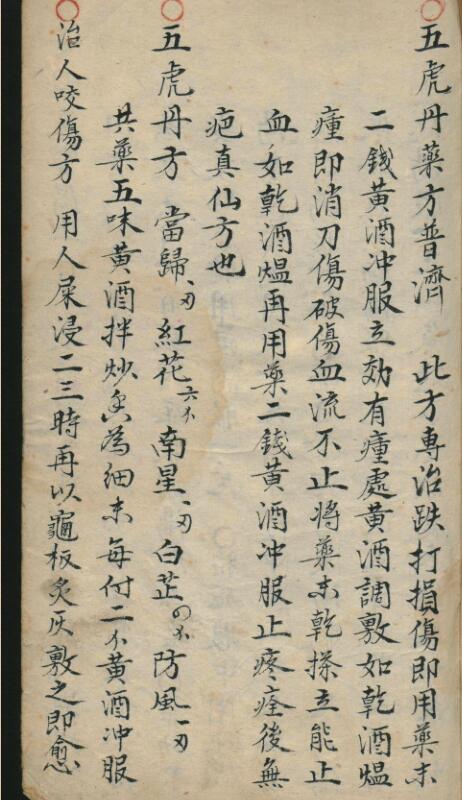 五虎丹藥方普濟　此方專治跌打損傷即用藥末
二錢黃酒冲服立効有瘇處黃酒調敷如乾酒熅
瘇即消刀傷破傷血流不止將藥末乾搽立能止
血如乾酒熅再用藥二錢黃酒冲服止疼痊後無
疤真仙方也
五虎丹方　當歸 紅花 南星 白芷 防風
共藥五味黃酒拌炒為細末每付二黃酒冲服
治人咬傷方　用人屎浸二三時再以龜板炙灰敷之即愈